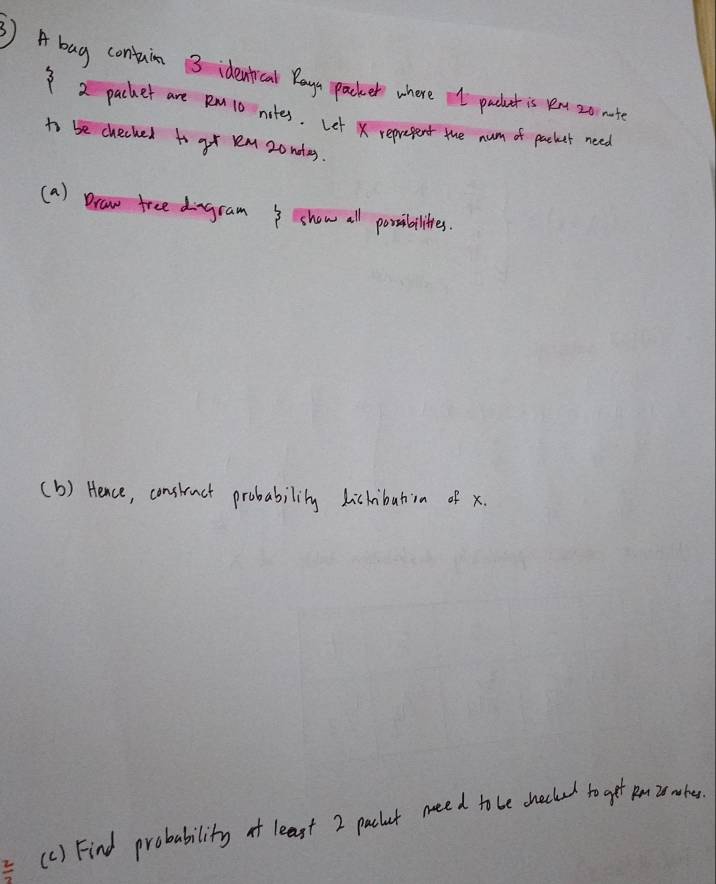 3) A bag contain 3 identical Raya packet where 1 packet is RM 20 note
& 2 packet are RM 10 notes. Let X represent the num of packet need
to be checked to get RM 20 notes.
(a) Draw tree diagram & show all possibilities.
(b) Hence, construct probability distribution of x.
(c) Find probability at least 2 packet need to be checked to get RM 20 notes.